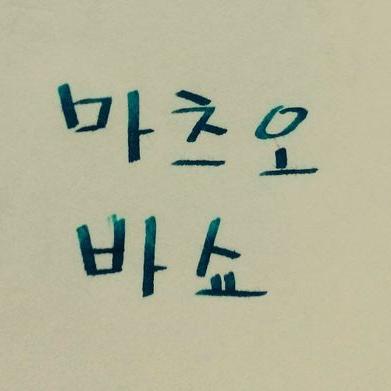 마츠오
바쇼